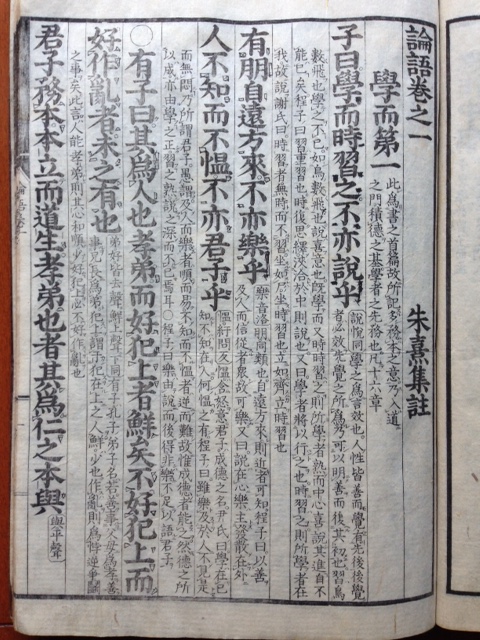 論語卷之一 朱熹集註
學而第一
此爲書之首篇故所記多務本之意乃入道
之門積德之基學者之先務也凡十六章
子曰學而時習之不亦說乎
說悅同學之爲言效也人性皆善而覺有先後後覺
者必效先覺之所爲乃可以明善而復其初也習鳥
數飛也學之不已如鳥數飛也說喜意也旣學而又時時習之則所學者熟而中心喜說其進自不
能已矣程子曰習重習也時復思繹浹洽於中則說也又曰學者將以行之也時習之則所學者在
我故說謝氏曰時習者無時而不習坐如尸坐時習也立如齊立時習也
有朋自遠方來不亦樂乎
樂音洛朋同類也自遠方來則近者可知程子曰以善
及人而信從者衆故可樂又曰說在心樂主發散在外
人不知而不慍不亦君子乎
慍紆問反慍含怒意君子成德之名尹氏曰學在己
知不知在人何慍之有程子曰雖樂及於人不見是
而無悶乃所謂君子愚謂及人而樂者順而易不知而不慍者逆而難故惟成德者能之然德之所
以成亦由學之正習之熟說之深而不已焉耳○程子曰樂由說而後得非樂不足以語君子
○有子曰其爲人也孝弟而好犯上者鮮矣不好犯上而
好作亂者未之有也
弟好皆去聲鮮上聲下同有子孔子弟子名若善事父母爲孝善
事兄長爲弟犯上謂干犯在上之人鮮少也作亂則爲悖逆爭鬭
之事矣此言人能孝弟則其心和順少好犯上必不好作亂也
君子務本本立而道生孝弟也者其爲仁之本與
與平聲